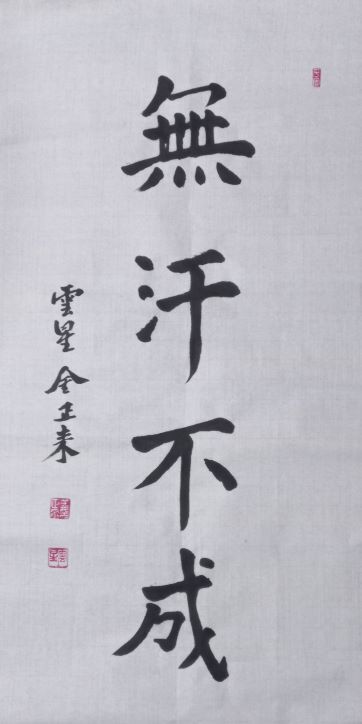 無汗不成
雲星 金正来